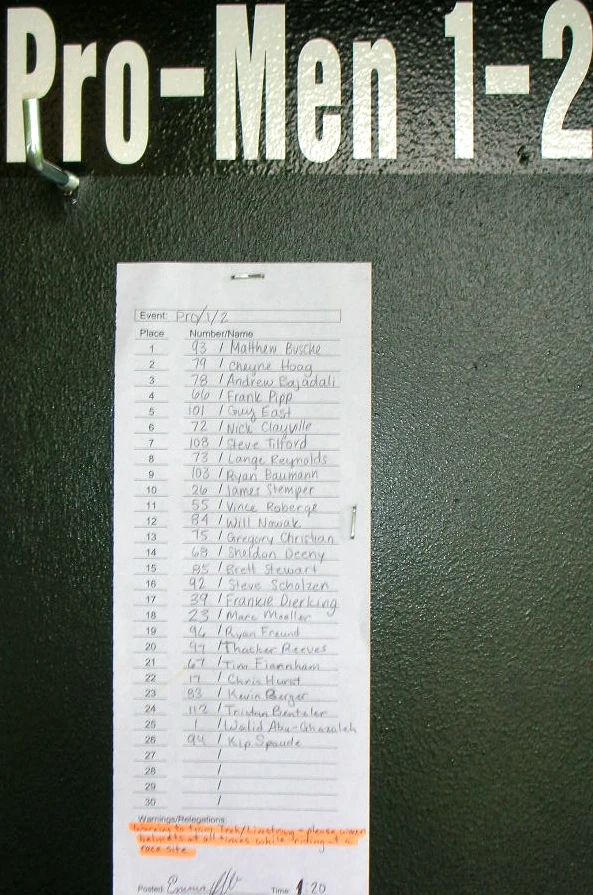 Pro-Men 1-2
Event: Pro/1/2
Place Number/Name
1 93 / Matthew Busche
2 79 / Cheyne Hoag
3 78 / Andrew Bajadali
4 66 / Frank Pipp
5 101 / Guy East
6 72 / Nick Clayville
7 108 / Steve Tilford
8 73 / Lange Reynolds
9 103 / Ryan Baumann
10 26 / James Stemper
11 55 / Vince Roberge
12 84 / Will Nowak
13 75 / Gregory Christian
14 68 / Sheldon Deeny
15 85 / Brett Stewart
16 92 / Steve Scholzen
17 39 / Frankie Dierking
18 23 / Marc Moeller
19 96 / Ryan Freund
20 97 / Thacker Reeves
21 67 / Tim Fiannham
22 17 / Chris Hurst
23 83 / Kevin Berger
24 112 / Tristan Benteler
25 1 / Walid Abu-Ghazaleh
26 94 / Kip Spaude
27 /
28 /
29 /
30 /
Warnings/Relegations:
Warning to team Trek/Livestrong - please wear
helmets at all times while riding at a
race site
Posted: Emma Time 1:20